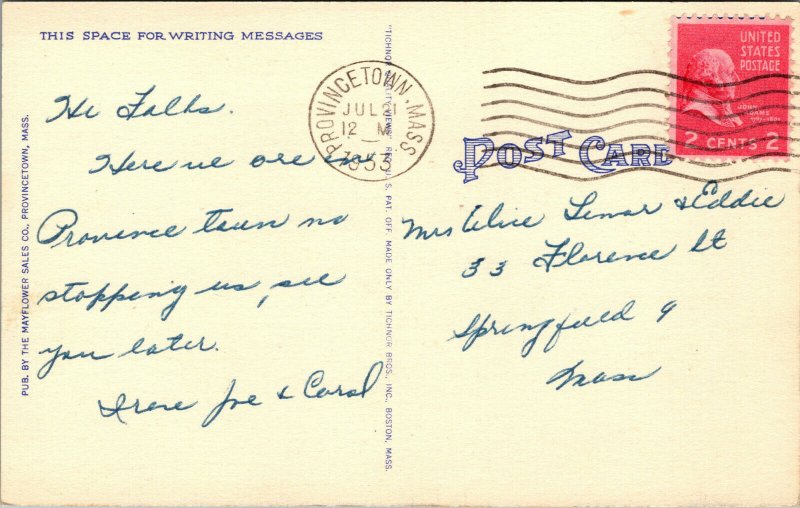 THIS SPACE FOR WRITING MESSAGES
Hi Folks.
Here we are in
Province town no
stopping us, see
you later.
Irene Joe & Carol
PUB. BY THE MAYFLOWER SALES CO., PROVINCETOWN, MASS.
"TICHNOR QUALITY VIEWS," REG. U. S. PAT. OFF. MADE ONLY BY TICHNOR BROS. INC., BOSTON, MASS.
PROVINCETOWN. MASS.
JUL 21
12 M
1953
UNITED
STATES
POSTAGE
JOHN
ADAMS
2 CENTS 2
POST CARD
Mrs Alice Lemar & Eddie
33 Florence St
Springfield 9
Mass